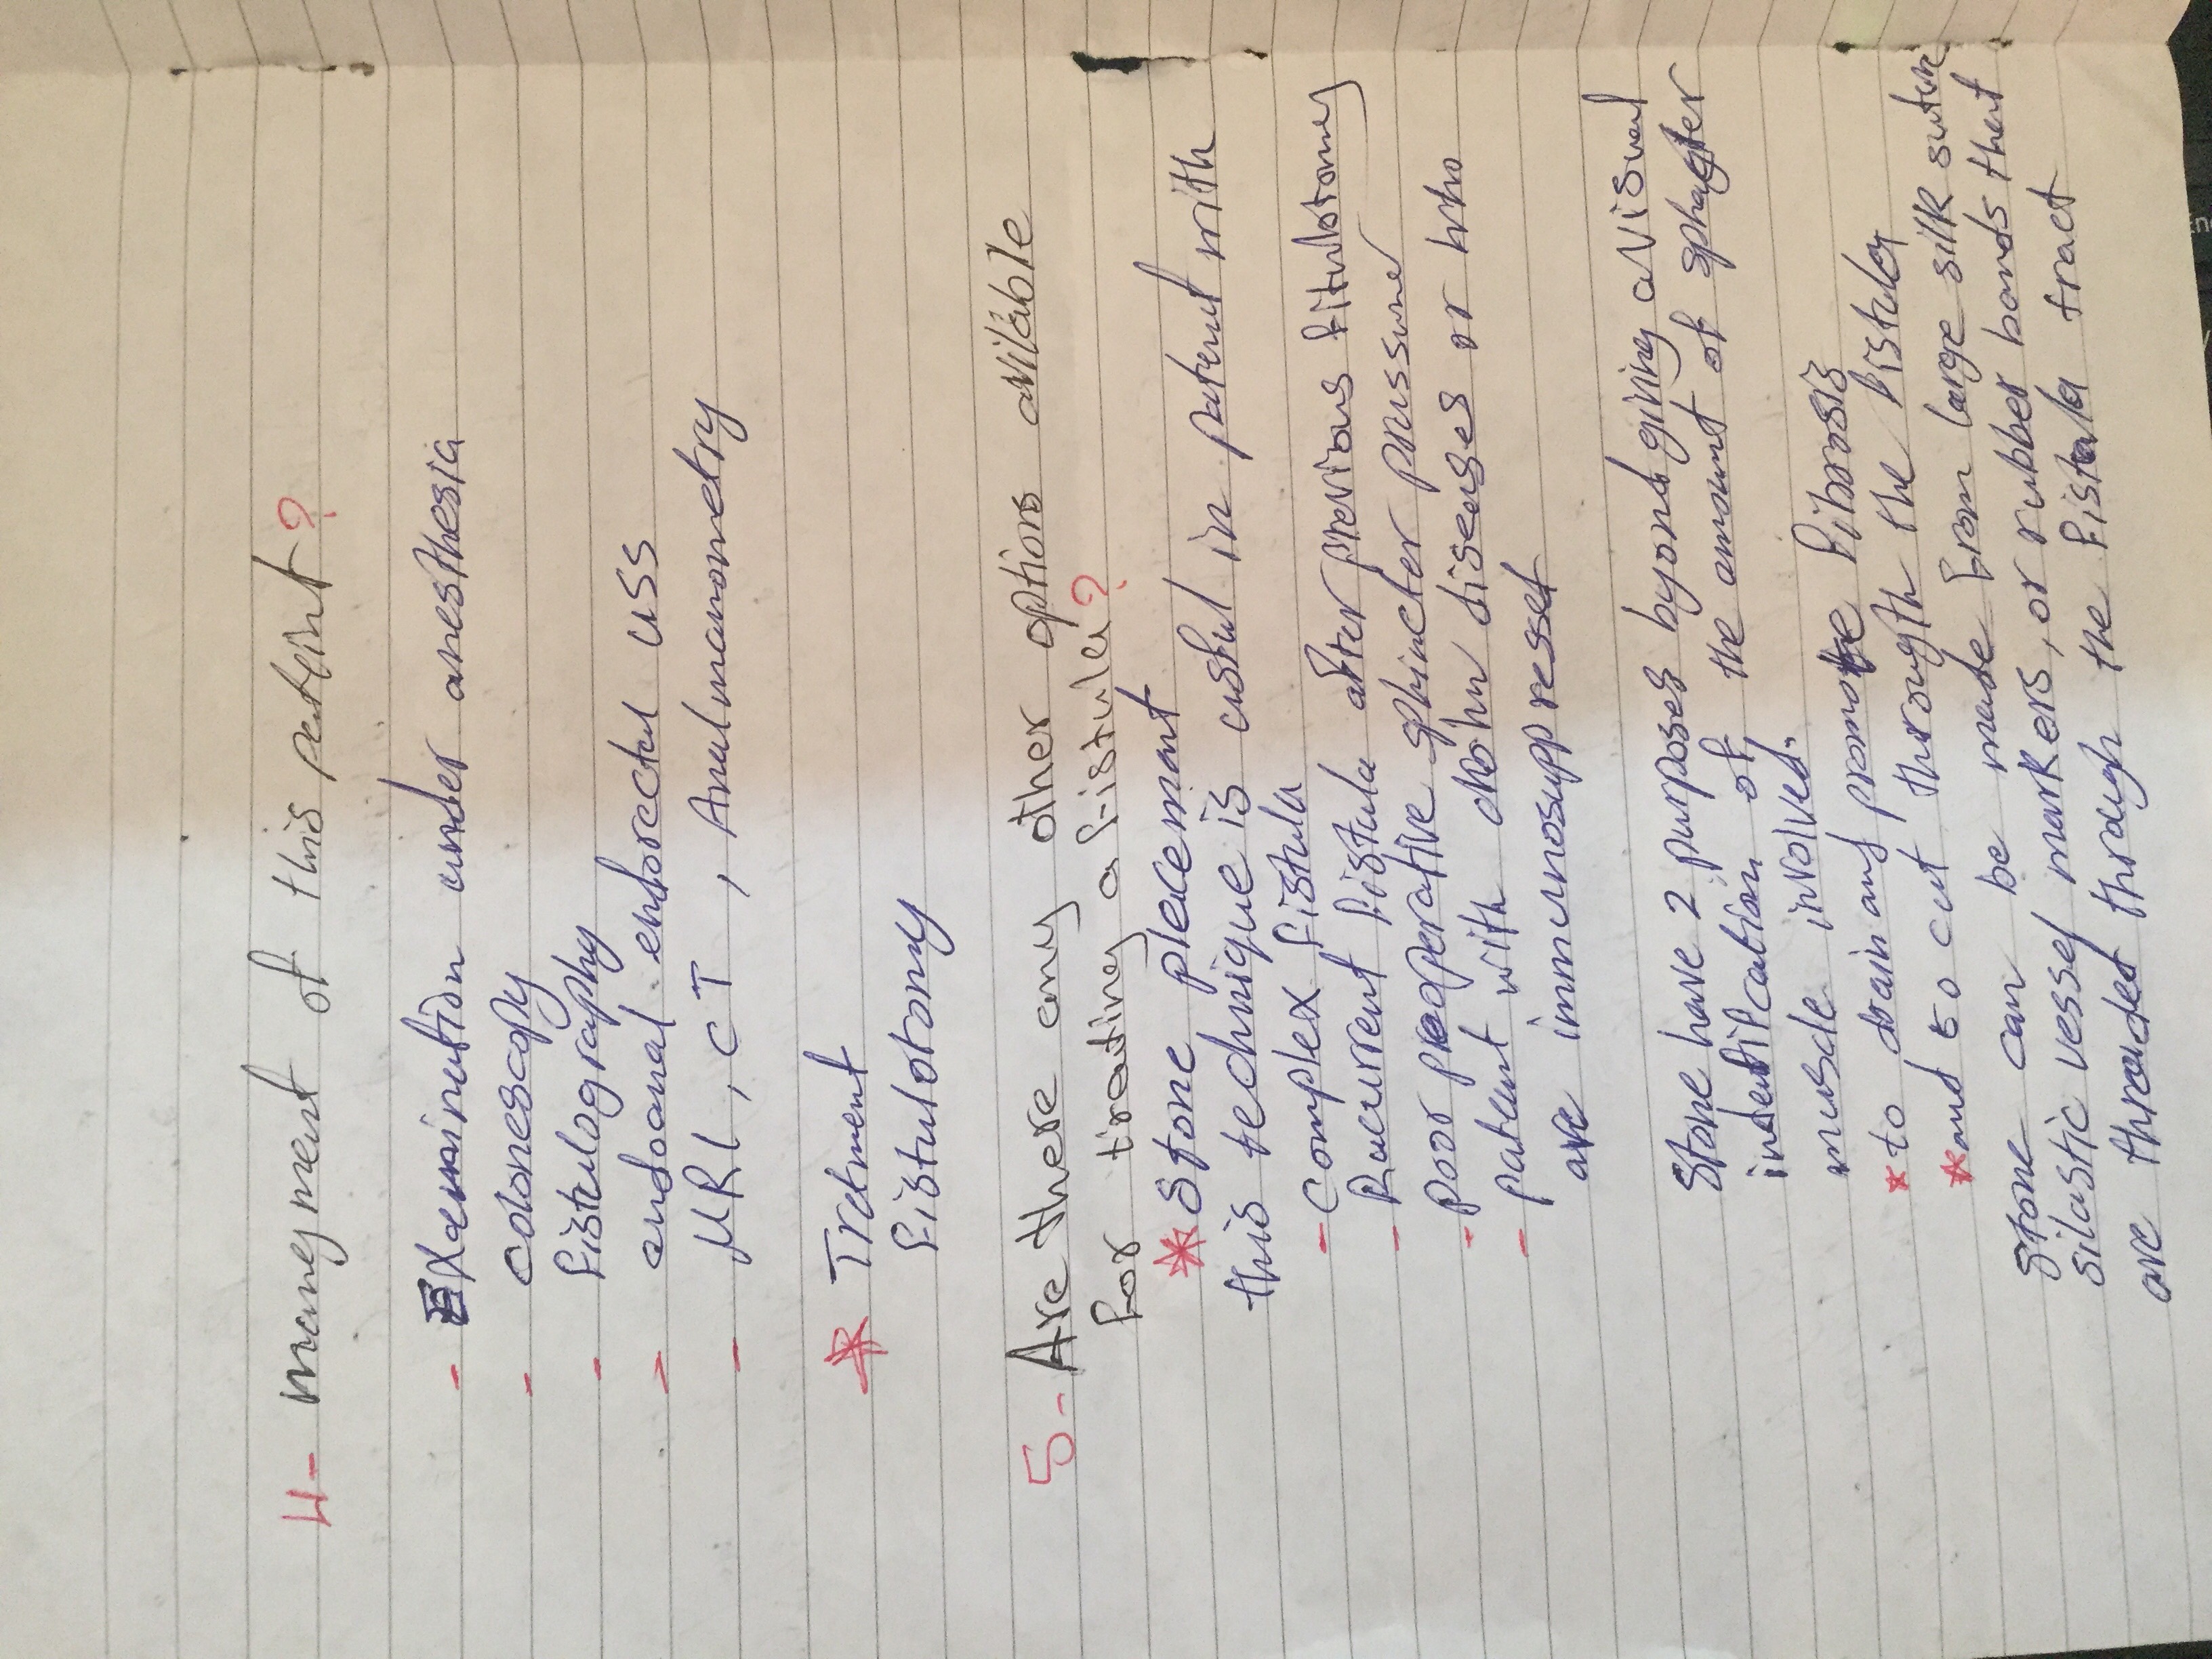 4- manegment of this pateint?
- Examination under anesthesia
- colonescopy
- fistulography
- endoanal endorectal USS
- MRI, CT, Analmanometry
* Tretment
fistulotomy
5- Are there any other options avilable
for treating a fistula?
* Stone plecemant
this technique is usful in patient with
- complex fistula
- Recurrent fistula after previous fitulotomy
- poor preoperative sphincter prussure
- patient with crohn diseases or who
are immunosuppresset
Stone have 2 purposes beyond giving a visual
indentification of the amount of sphagter
muscle involved.
* to drain and promote fibrosis
* and to cut througth the fistula
Stone can be made from large silk suture
silastic vessel markers, or rubber bands that
are threaded through the fistula tract